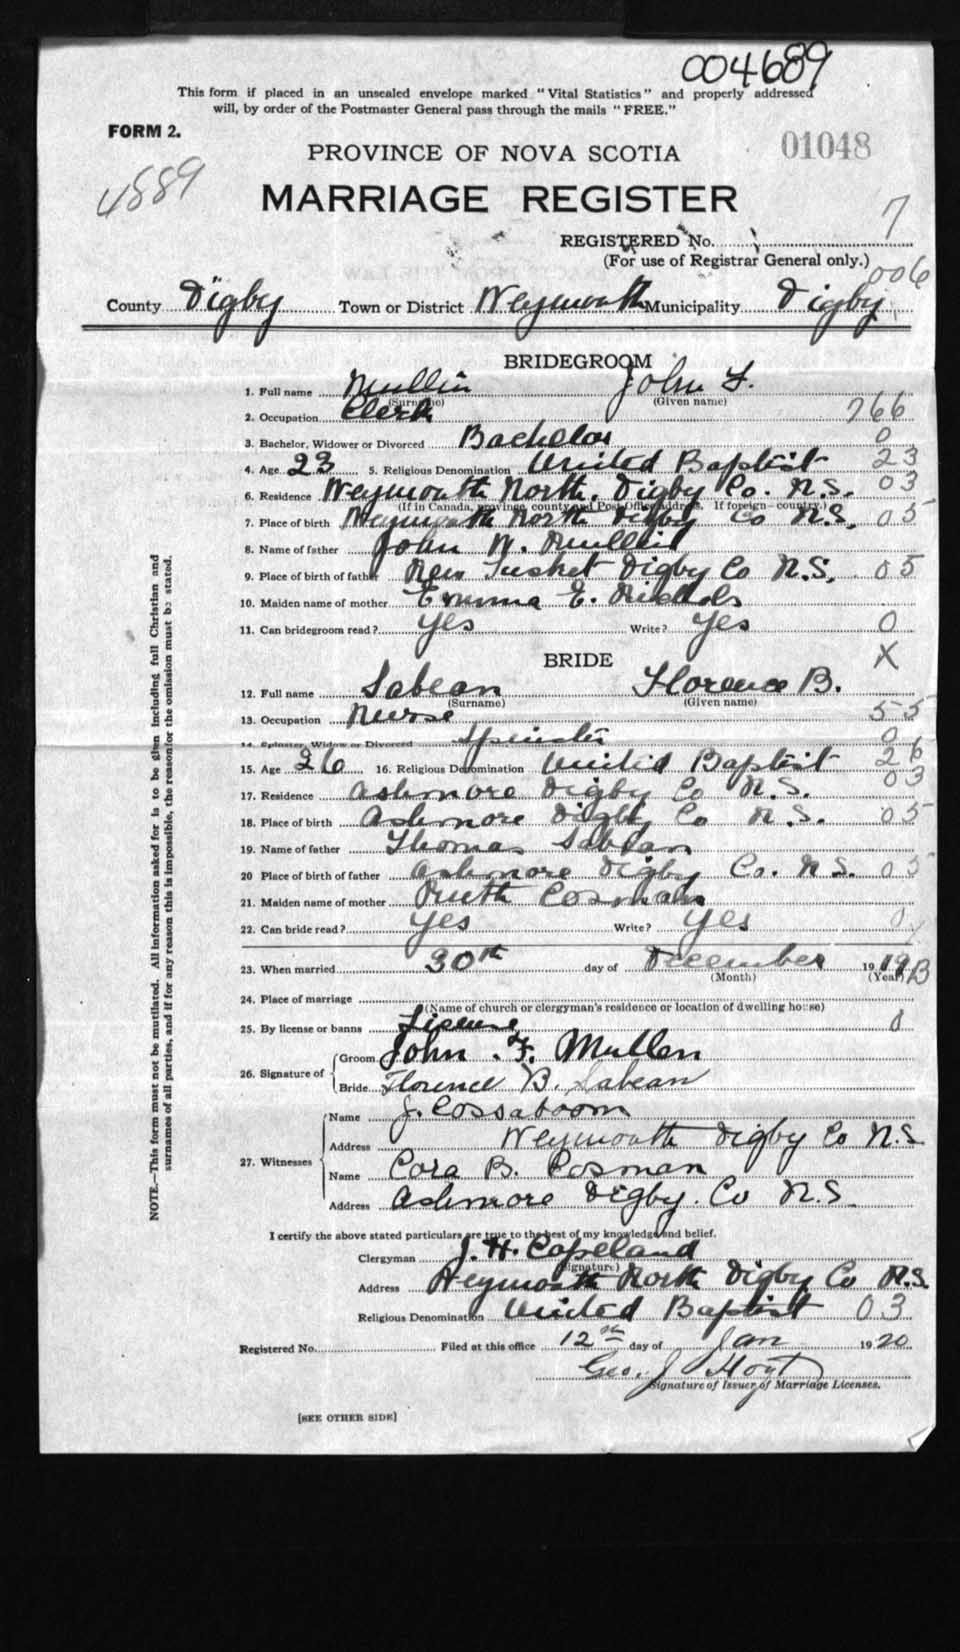 004689
This form if placed in an unsealed envelope marked "Vital Statistics" and properly addressed
will, by order of the Postmaster General pass through the mails "FREE."
FORM 2.
01048
PROVINCE OF NOVA SCOTIA
4889
MARRIAGE REGISTER
7
REGISTERED No.
(For use of Registrar General only.)
006
County Digby Town or District Weymouth Municipality Digby
BRIDEGROOM
1. Full name Mullin John F.
(Surname) (Given name)
2. Occupation Clerk 766
3. Bachelor, Widower or Divorced Bachelor 0
4. Age 23 5. Religious Denomination United Baptist 23
6. Residence Weymouth North. Digby Co. N.S. 03
(If in Canada, province, county and Post Office address. If foreign—country.)
7. Place of birth Weymouth North Digby Co N.S. 05
8. Name of father John W. Mullin
9. Place of birth of father New Tusket Digby Co N.S. 05
10. Maiden name of mother Emma E. Nichols
11. Can bridegroom read? yes Write? yes 0
BRIDE X
12. Full name Sabean Florence B.
(Surname) (Given name)
13. Occupation Nurse 55
14. Spinster, Widow or Divorced Spinster 0
15. Age 26 16. Religious Denomination United Baptist 26
17. Residence Ashmore Digby Co N.S. 03
18. Place of birth Ashmore Digby Co N.S. 05
19. Name of father Thomas Sabean
20 Place of birth of father Ashmore Digby Co. N S. 05
21. Maiden name of mother Ruth Cosman
22. Can bride read? yes Write? yes 0
23. When married 30th day of December 1919 B
(Month) (Year)
24. Place of marriage
(Name of church or clergyman's residence or location of dwelling house)
25. By license or banns License
26. Signature of Groom John F. Mullen
Bride Florence B. Sabean
27. Witnesses Name J. Cossaboom
Address Weymouth Digby Co N.S.
Name Cora B. Cosman
Address Ashmore Digby. Co N.S.
I certify the above stated particulars are true to the best of my knowledge and belief.
Clergyman J. H. Copeland
(Signature)
Address Weymouth North Digby Co N.S.
Religious Denomination United Baptist 03
Registered No. Filed at this office 12th day of Jan 1920
Geo. J. Hoyt
Signature of Issuer of Marriage Licenses.
[SEE OTHER SIDE]
NOTE.—This form must not be mutilated. All information asked for is to be given including full Christian and
surnames of all parties, and if for any reason this is impossible, the reason for the omission must be stated.